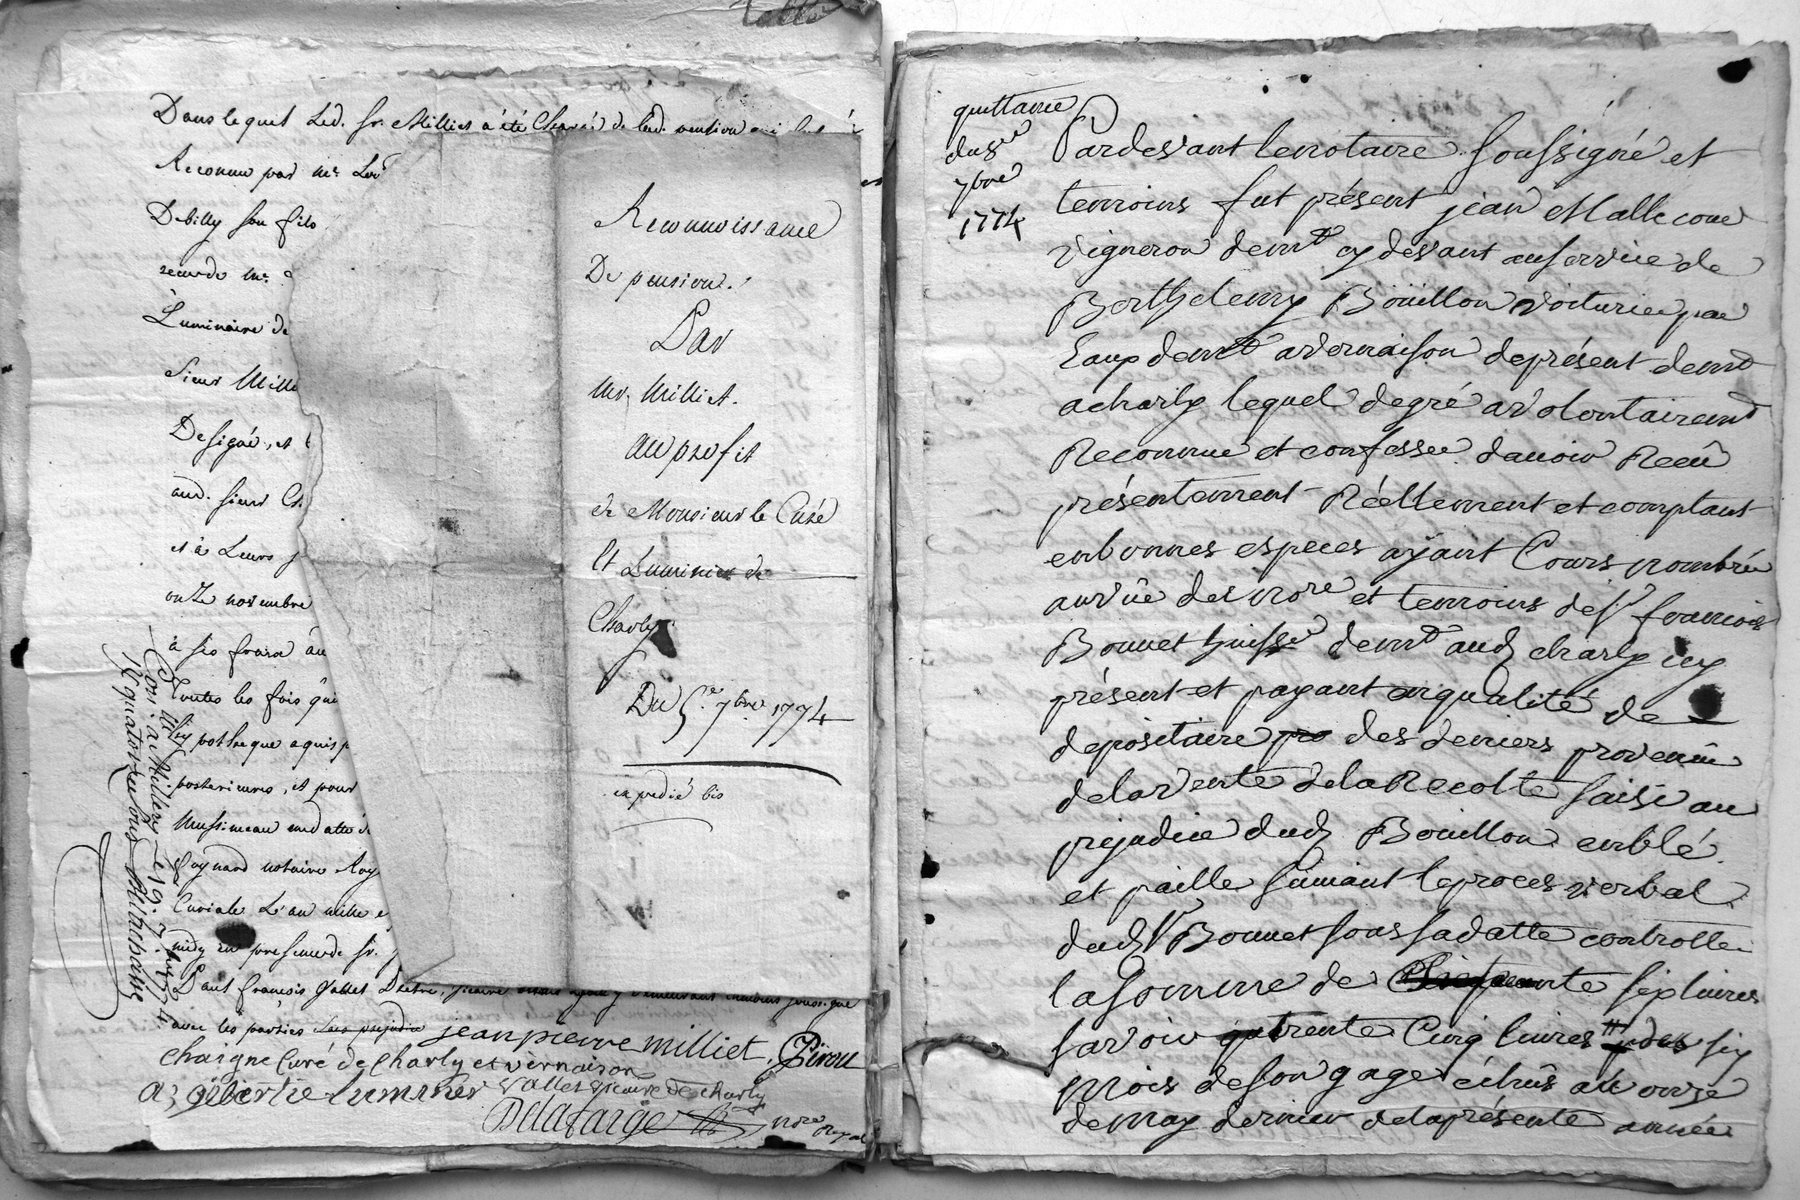 Dans lequel Led. Sr. Milliet a été Chargé de lad. pension
Reconnu par mr.
Debilly son fils
seconde mr.
Luminaire de
Sieur Mille
Designé, et
aud. sieur Ch
et à Leurs
onze novembre
à ses fraix au
Toutes les fois qui
hypotheque aquis p
posterieures, et pour
Messimeau
Guynard notaire Roy
Curiale L'an mille
midy en presence de Sr.
avec les parties sans prejudice jean pierre milliet, Pirou
chaigne Curé de charly et vernaison
gibertie luminier Vallet vicaire de charly
Delafarge nore Royal
Con. à Millery le 19. 7bre 1774
Reconnoissance
De pension.
Par
Mr. Milliet.
au profit
de Monsieur le Curé
Et Luminier de
Charly
Du 5e. 7bre 1774
expedié bis
quittance
du 5e
7bre
1774
Pardevant le notaire soussigné et
temoins fut présent jean Mallecour
vigneron demt cy devant au service de
Berthelemy Boüillon voiturier par
Eaup demt a vernaison de présent demt
a charly lequel de gré a volontairemt
Reconnu et confessé d'avoir Recû
présentement Réellement et comptant
en bonnes especes ayant Cours nombrée
au vûe des nore et temoins de sr francois
Bonnet huissr demt aud charly icy
présent et payant en qualité de
depositaire pro des deniers provenû
de la vente de la Recolte saisie au
prejudice dud Bouillon en blé
et paille suivant le proces verbal
dud sr Bonnet sous sa datte controllé
la somme de sept livres
savoir trente Cinq livres pour six
mois de son gage échûs au onze
de may dernier de la présente année